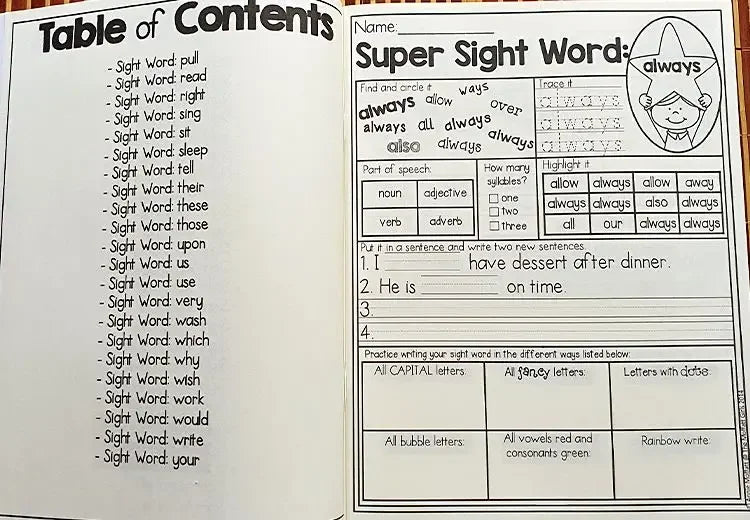 Table of Contents
- Sight Word: pull
- Sight Word: read
- Sight Word: right
- Sight Word: sing
- Sight Word: sit
- Sight Word: sleep
- Sight Word: tell
- Sight Word: their
- Sight Word: these
- Sight Word: those
- Sight Word: upon
- Sight Word: us
- Sight Word: use
- Sight Word: very
- Sight Word: wash
- Sight Word: which
- Sight Word: why
- Sight Word: wish
- Sight Word: work
- Sight Word: would
- Sight Word: write
- Sight Word: your
Name:
Super Sight Word:
always
Find and circle it
ways
always allow over
always all always
also always always
Trace it
always
always
always
Part of speech:
noun adjective
verb adverb
How many
syllables?
one
two
three
Highlight it
allow always allow away
always always also always
all our always always
Put it in a sentence and write two new sentences.
1. I have dessert after dinner.
2. He is on time.
3.
4.
Practice writing your sight word in the different ways listed below:
All CAPITAL letters: All fancy letters: Letters with dots:
All bubble letters: All vowels red and consonants green: Rainbow write: